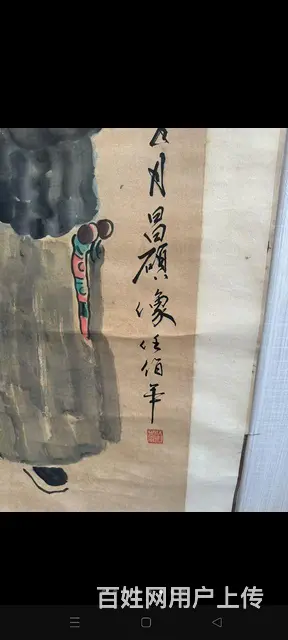 月昌碩像任佰年
百姓网用户上传